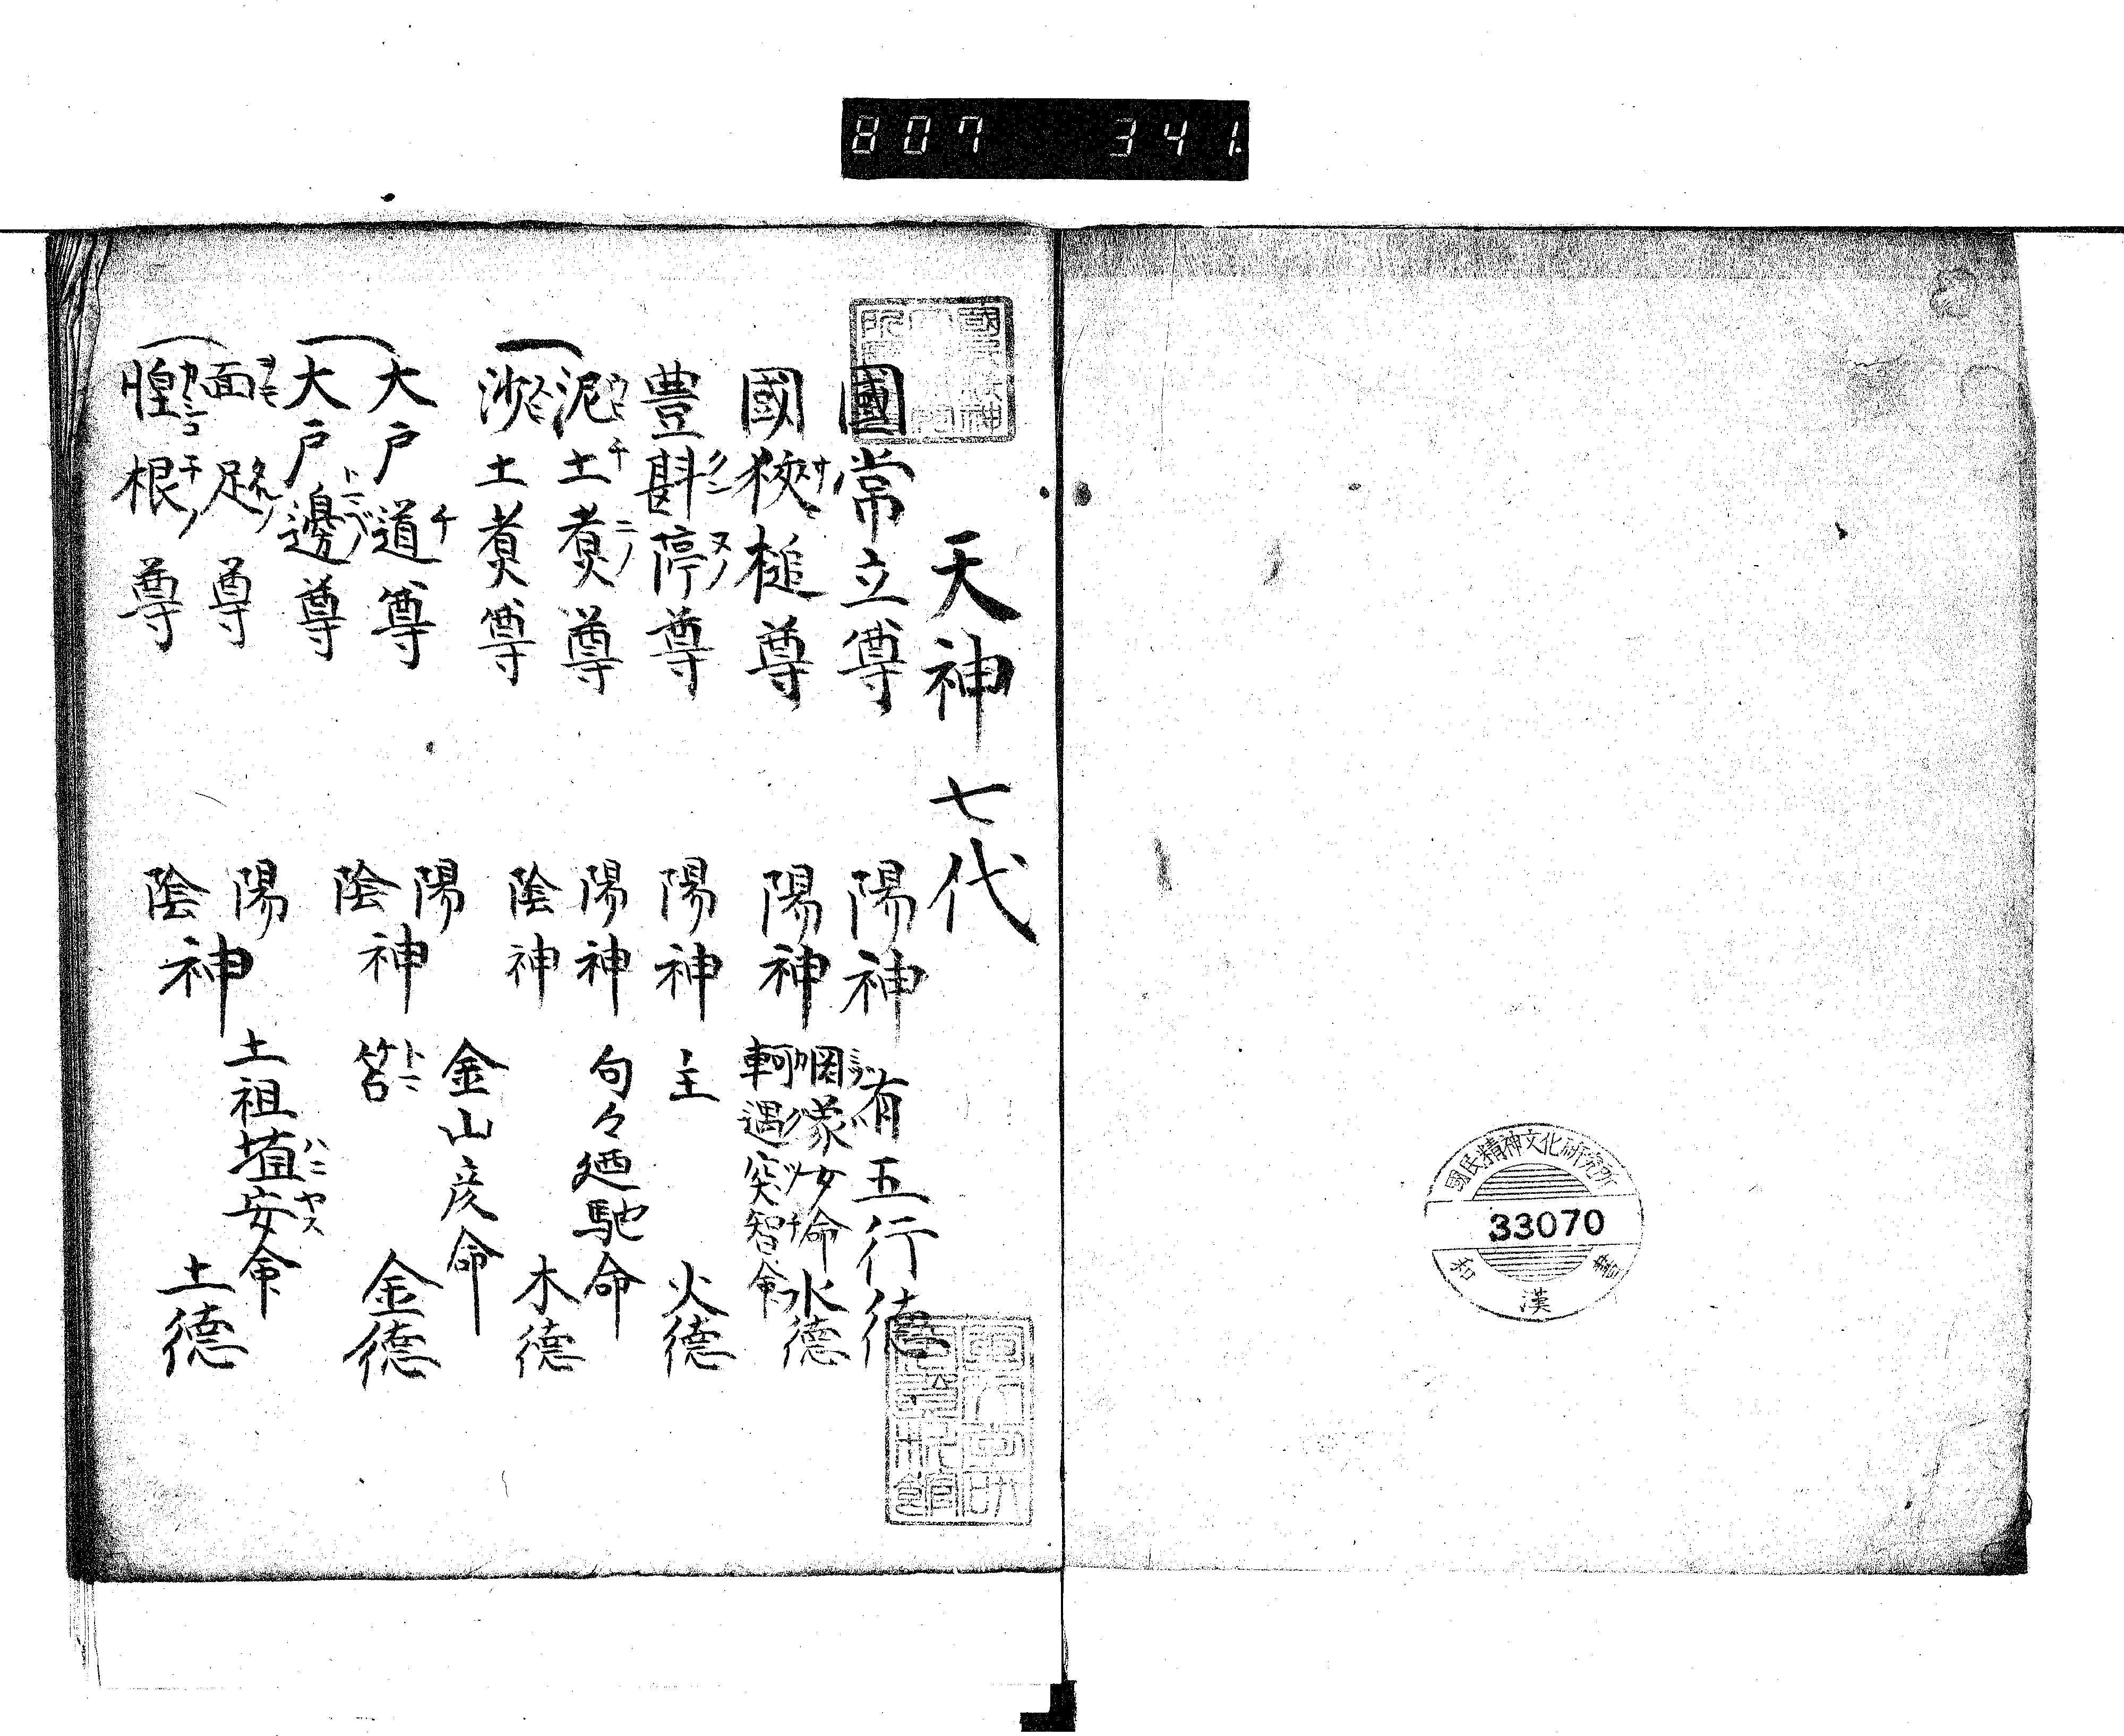 807 341.
國民精神文化研究所
33070
和漢書
天神七代
國常立尊 陽神 有五行德
國狹槌尊 陽神 罔象女命 水德
軻遇突智命
豊斟渟尊 陽神 主 火德
泥土煑尊 陽神 句々廼馳命
沙土煑尊 陰神 木德
大戸道尊 陽 金山彦命
大戸邊尊 陰神 筥 金德
面足尊 陽 土祖埴安命
惶根尊 陰神 土德